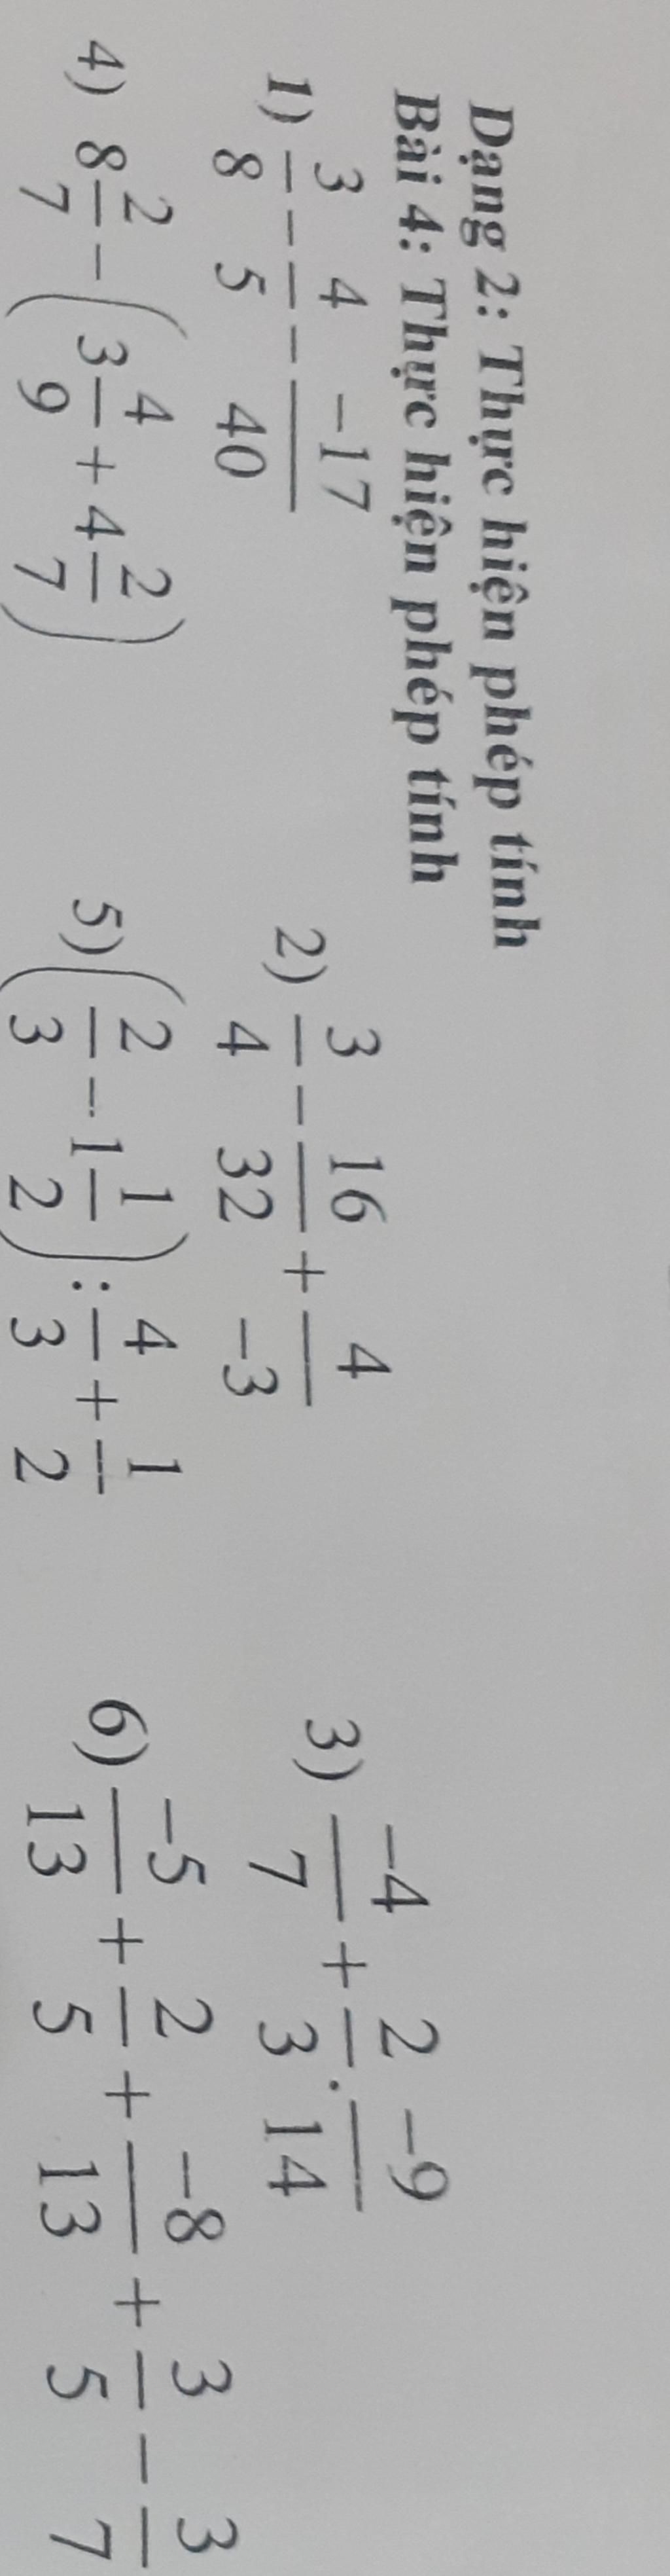 Dạng 2: Thực hiện phép tính
Bài 4: Thực hiện phép tính
1) 3/8 - 4/5 - -17/40 2) 3/4 - 16/32 + 4/-3 3) -4/7 + 2/3 . -9/14
4) 8 2/7 - (3 4/9 + 4 2/7) 5) (2/3 - 1 1/2) : 4/3 + 1/2 6) -5/13 + 2/5 + -8/13 + 3/5 - 3/7